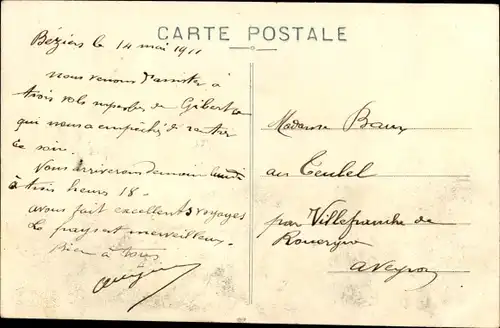 CARTE POSTALE
Béziers le 14 mai 1911
Nous venons d'assister à
trois vols superbes de Gibert
qui nous a empêchés de rentrer
ce soir.
Nous arriverons demain lundi
à trois heures 18.
avons fait excellents voyages
Le pays est merveilleux.
Bien à tous
Madame Baux
au Teulel
par Villefranche de
Rouergue
Aveyron